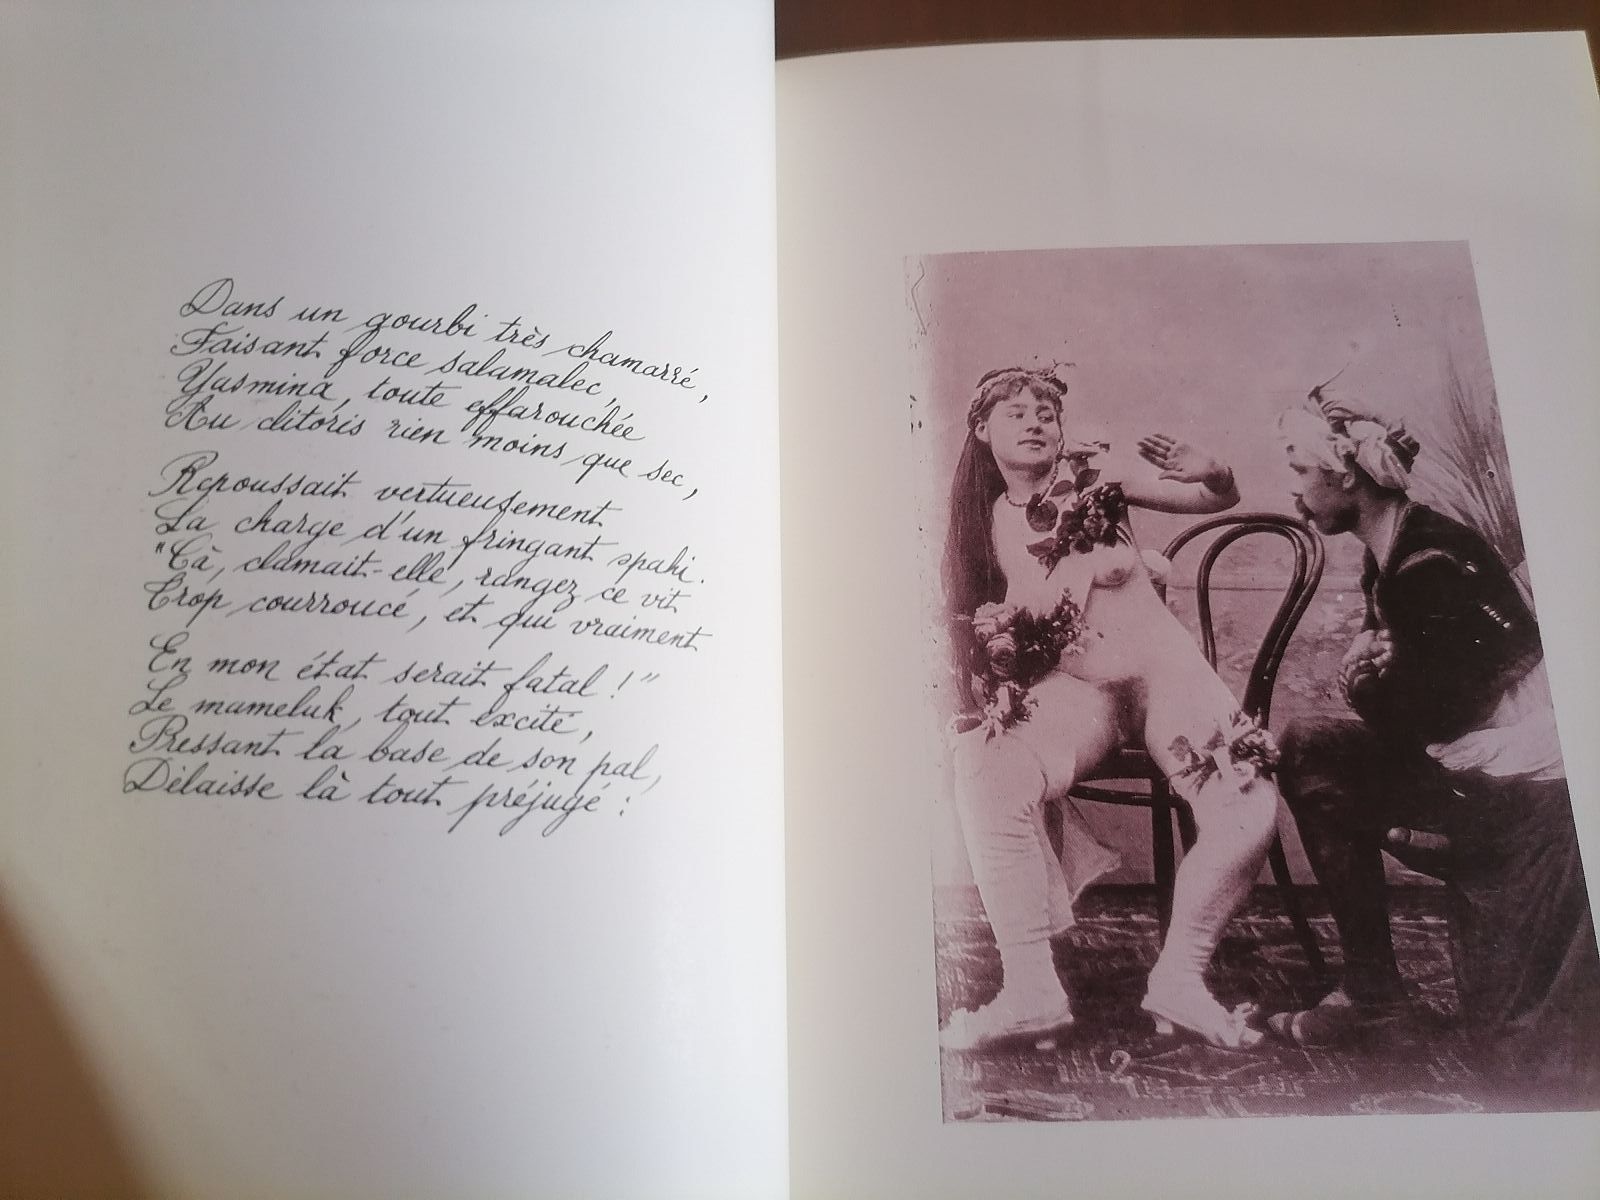 Dans un gourbi très chamarré,
Faisant force salamalec,
Yasmina, toute effarouchée
Au clitoris rien moins que sec,
Repoussait vertueusement
La charge d'un fringant spahi.
"Çà, clamait-elle, rangez ce vit
Trop courroucé, et qui vraiment
En mon état serait fatal !"
Le mameluk, tout excité,
Pressant la base de son pal,
Délaisse là tout préjugé :
2